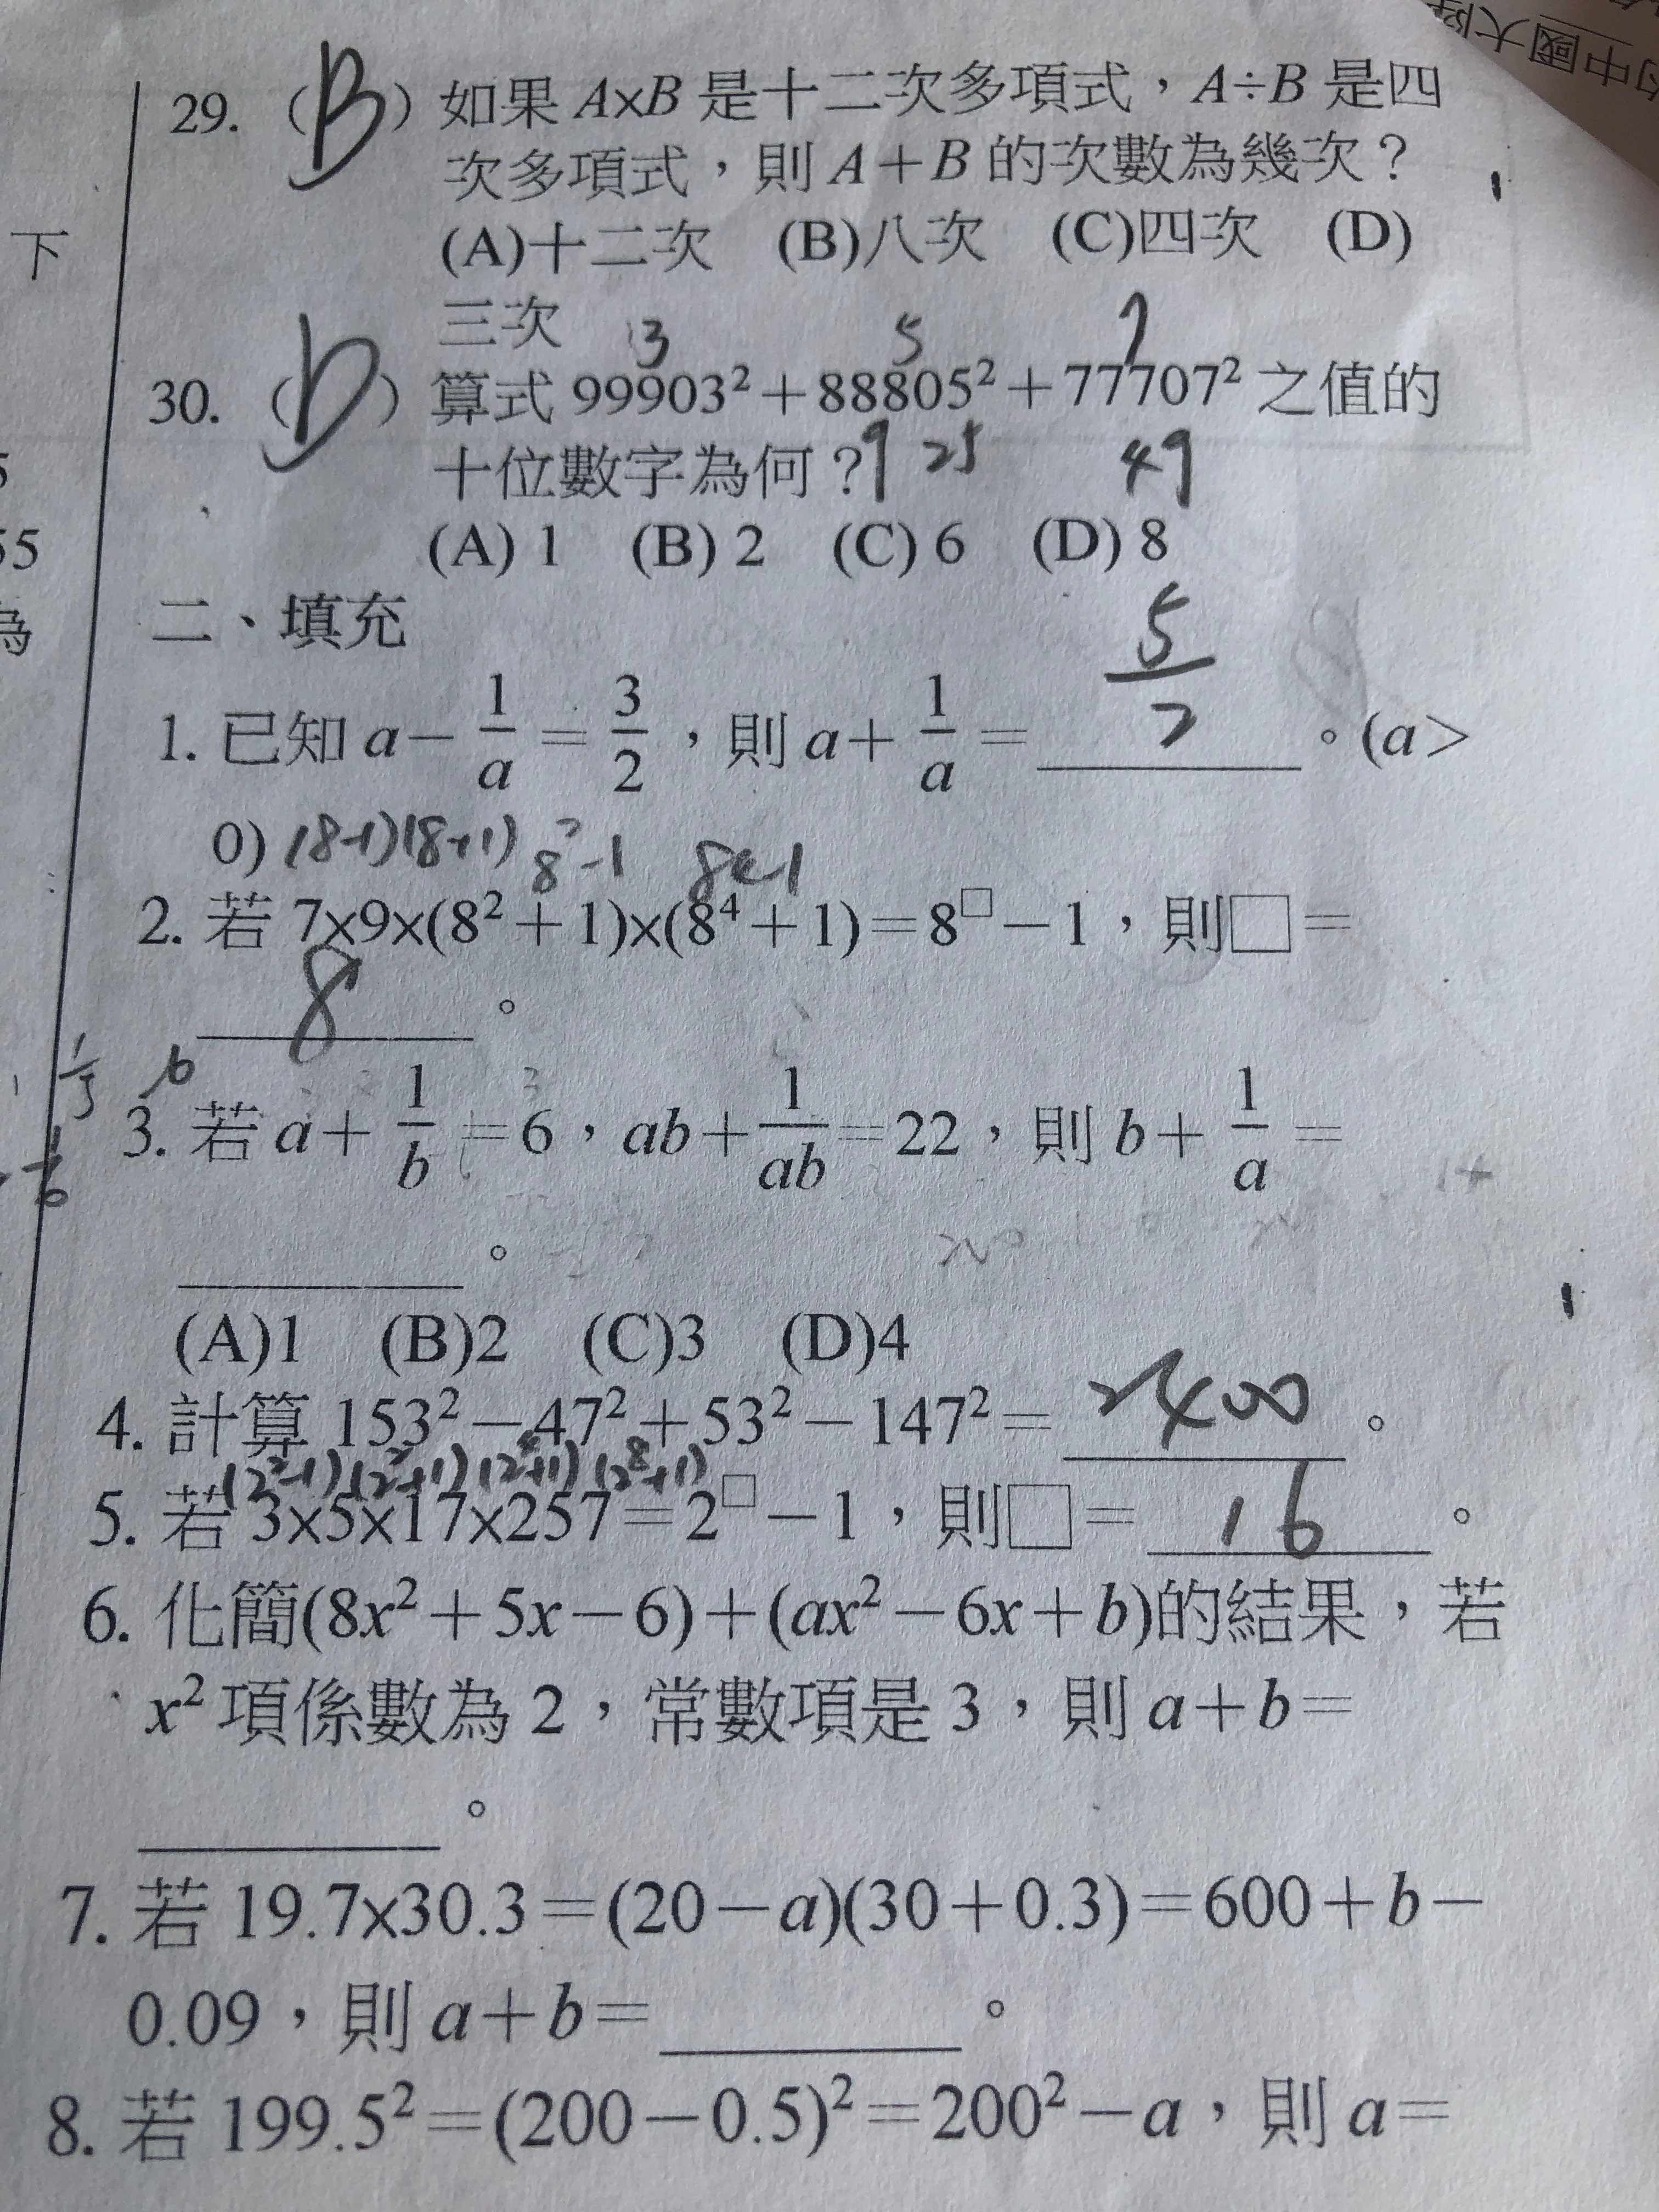 中國大陸
29. (B) 如果 A×B 是十二次多項式，A÷B 是四
次多項式，則 A＋B 的次數為幾次？
(A)十二次 (B)八次 (C)四次 (D)
下
三次
3 5 7
30. (D) 算式 99903²＋88805²＋77707² 之值的
十位數字為何？
9 25 49
(A) 1 (B) 2 (C) 6 (D) 8
55
為
二、填充
1. 已知 a－1/a＝3/2，則 a＋1/a＝5/2。(a＞
0)
(8-1)(8+1) 8²-1
2. 若 7×9×(8²＋1)×(8⁴＋1)＝8□－1，則□＝
8。
3. 若 a＋1/b＝6，ab＋1/ab＝22，則 b＋1/a＝
。
(A)1 (B)2 (C)3 (D)4
4. 計算 153²－47²＋53²－147²＝2400。
(2²-1)(2²+1)(2⁴+1)(2⁸+1)
5. 若 3×5×17×257＝2□－1，則□＝16。
6. 化簡(8x²＋5x－6)＋(ax²－6x＋b)的結果，若
x² 項係數為 2，常數項是 3，則 a＋b＝
。
7. 若 19.7×30.3＝(20－a)(30＋0.3)＝600＋b－
0.09，則 a＋b＝ 。
8. 若 199.5²＝(200－0.5)²＝200²－a，則 a＝